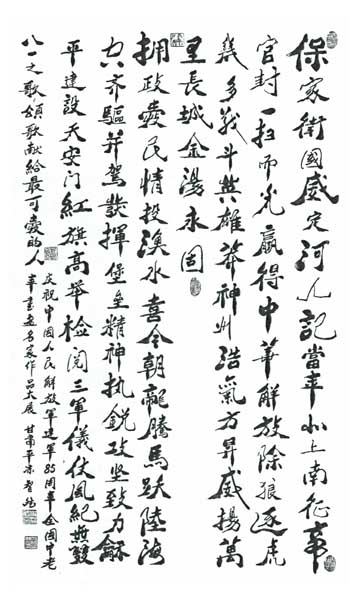 保家衛國威定河山記當年北上南征
官封一扫而光赢得中華解放除狼逐虎
幾多戰斗英雄莽神州浩氣方昇威揚萬
里長城金湯永固
拥政爱民情投水喜今朝龍騰馬跃陸海
空齐驅并駕發揮堡垒精神执銳攻坚致力龢
平建設天安门紅旗高举检阅三軍儀仗風紀無雙
八一之歌頌歌献給最可愛的人
庆祝中國人民解放軍建軍85周年全國中老
年書画名家作品大展 甘肃平凉